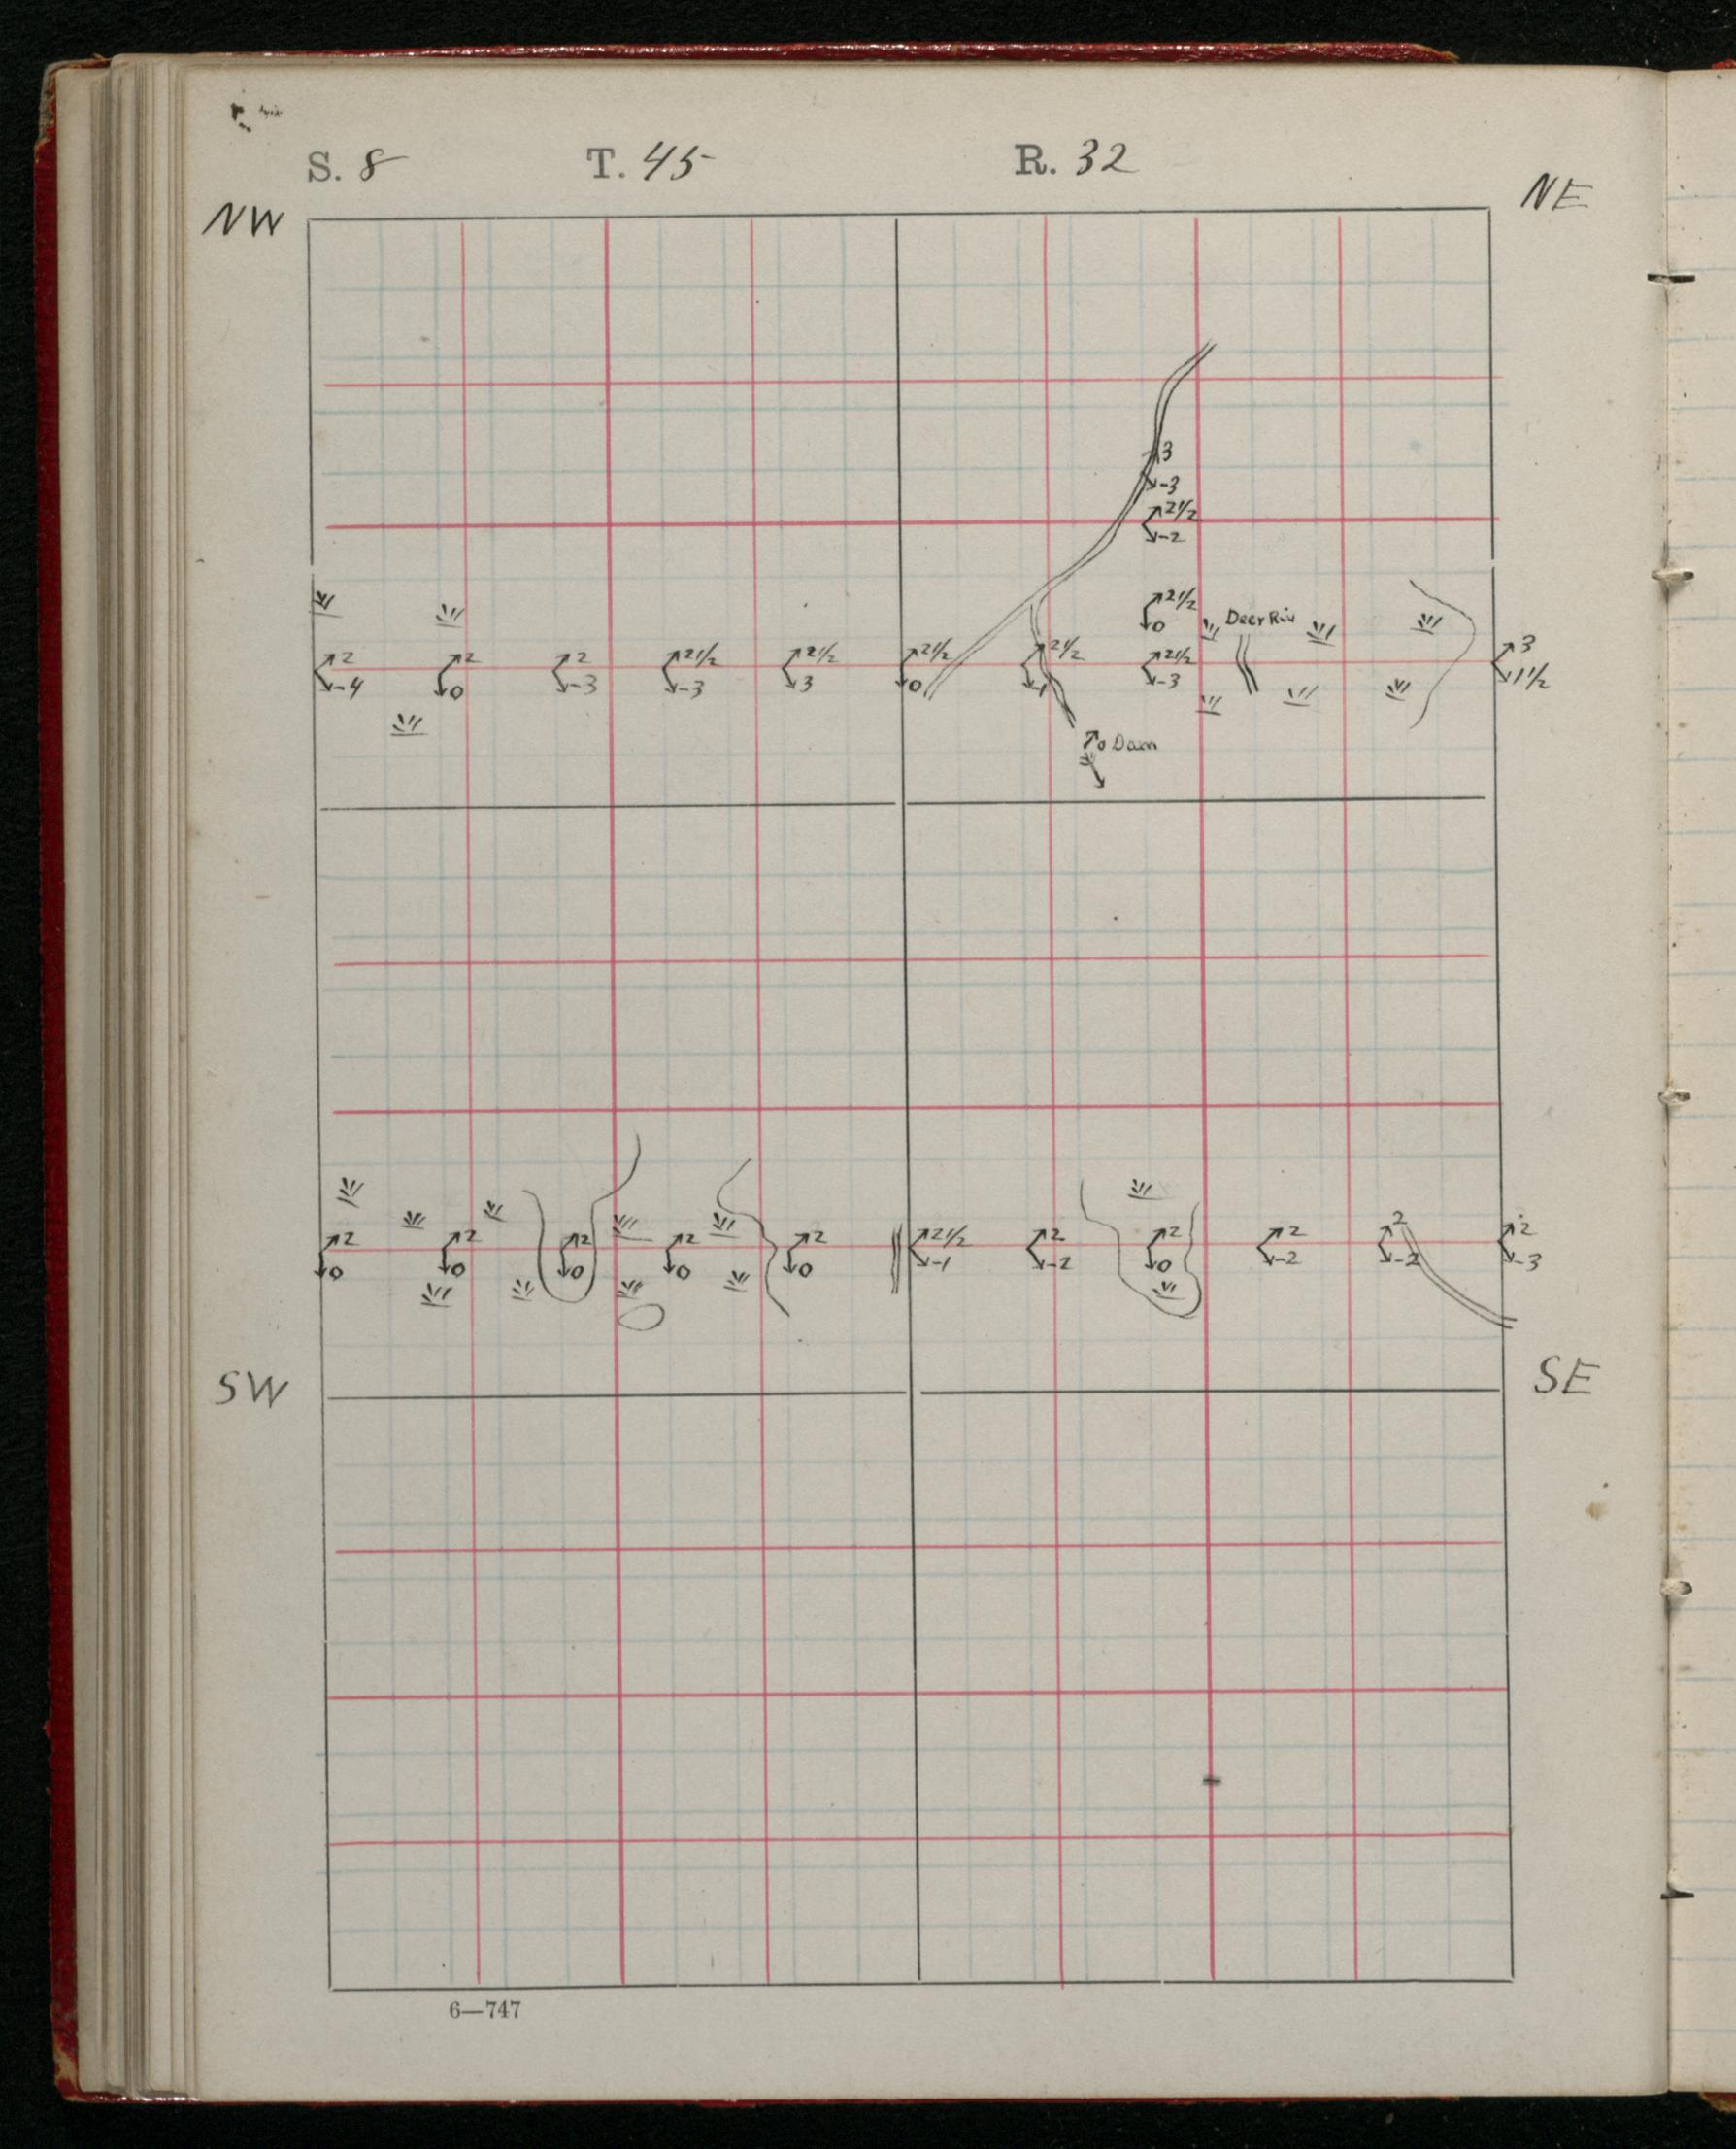 S. 8 T. 45 R. 32
NW NE
3
-3
2 1/2
-2
2 1/2
0
Deer Riv
2 2 2 2 1/2 2 1/2 2 1/2 2 1/2 2 1/2 3
-4 0 -3 -3 3 0 -1 -3 1 1/2
0 Dam
2 2 2 2 2 2 1/2 2 2 2 2 2
0 0 0 0 0 -1 -2 0 -2 -2 -3
SW SE
6—747